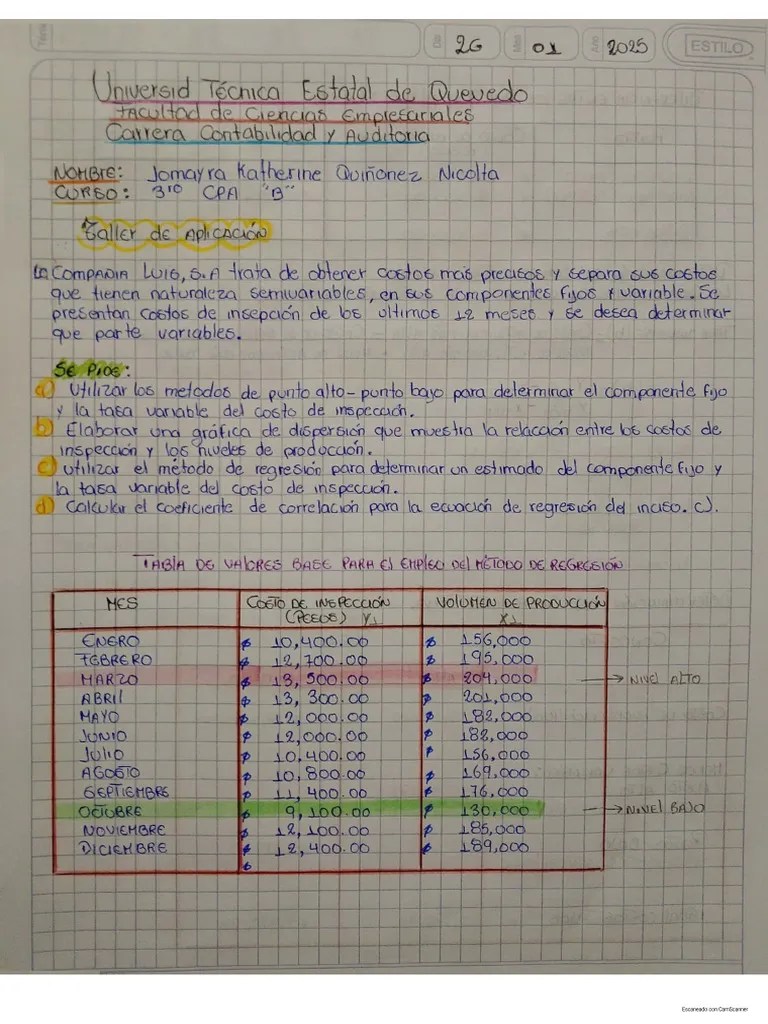 Día 26 Mes 01 Año 2025 ESTILO
Universid Técnica Estatal de Quevedo
Facultad de Ciencias Empresariales
Carrera Contabilidad y Auditoria
NOMBRE: Jomayra Katherine Quiñonez Nicolta
CURSO: 3ro CPA "B"
Taller de Aplicación
La Compania Luis, S.A trata de obtener costos mas precisos y separa sus costos
que tienen naturaleza semivariables, en sus componentes fijos y variable. Se
presentan costos de insepción de los ultimos 12 meses y se desea determinar
que parte variables.
Se Pide:
a) Utilizar los metodos de punto alto - punto bajo para determinar el componente fijo
y la tasa variable del costo de inspección.
b) Elaborar una gráfica de dispersión que muestra la relacción entre los costos de
inspección y los niveles de producción.
c) Utilizar el método de regresión para determinar un estimado del componente fijo y
la tasa variable del costo de inspección.
d) Calcular el coeficiente de correlación para la ecuación de regresión del inciso. c).
Tabla de valores base para el empleo del método de regresión
MES COSTO DE INSPECCIÓN VOLUMEN DE PRODUCCIÓN
(PESOS) Y1 X1
ENERO $ 10,400.00 $ 156,000
FEBRERO $ 12,700.00 $ 195,000
MARZO $ 13,500.00 $ 204,000 → NIVEL ALTO
ABRIL $ 13,300.00 $ 201,000
MAYO $ 12,000.00 $ 182,000
JUNIO $ 12,000.00 $ 182,000
JULIO $ 10,400.00 $ 156,000
AGOSTO $ 10,800.00 $ 169,000
SEPTIEMBRE $ 11,400.00 $ 176,000
OCTUBRE $ 9,100.00 $ 130,000 → NIVEL BAJO
NOVIEMBRE $ 12,100.00 $ 185,000
DICIEMBRE $ 12,400.00 $ 189,000
$
Escaneado con CamScanner